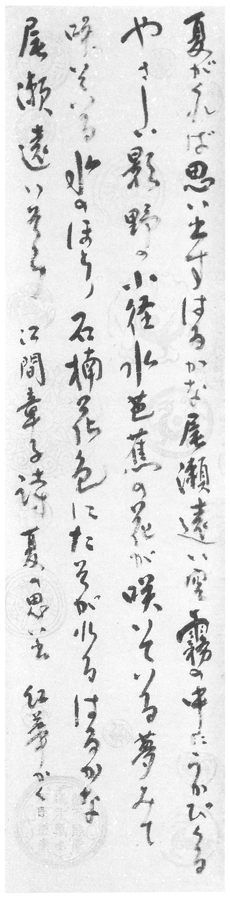 夏がくれば思い出すはるかな尾瀬遠い空霧の中にうかびくる
やさしい影野の小径水芭蕉の花が咲いている夢みて
咲いている水のほとり石楠花色にたそがれるはるかな
尾瀬遠い空 江間章子詩 夏の思い出 紅夢かく